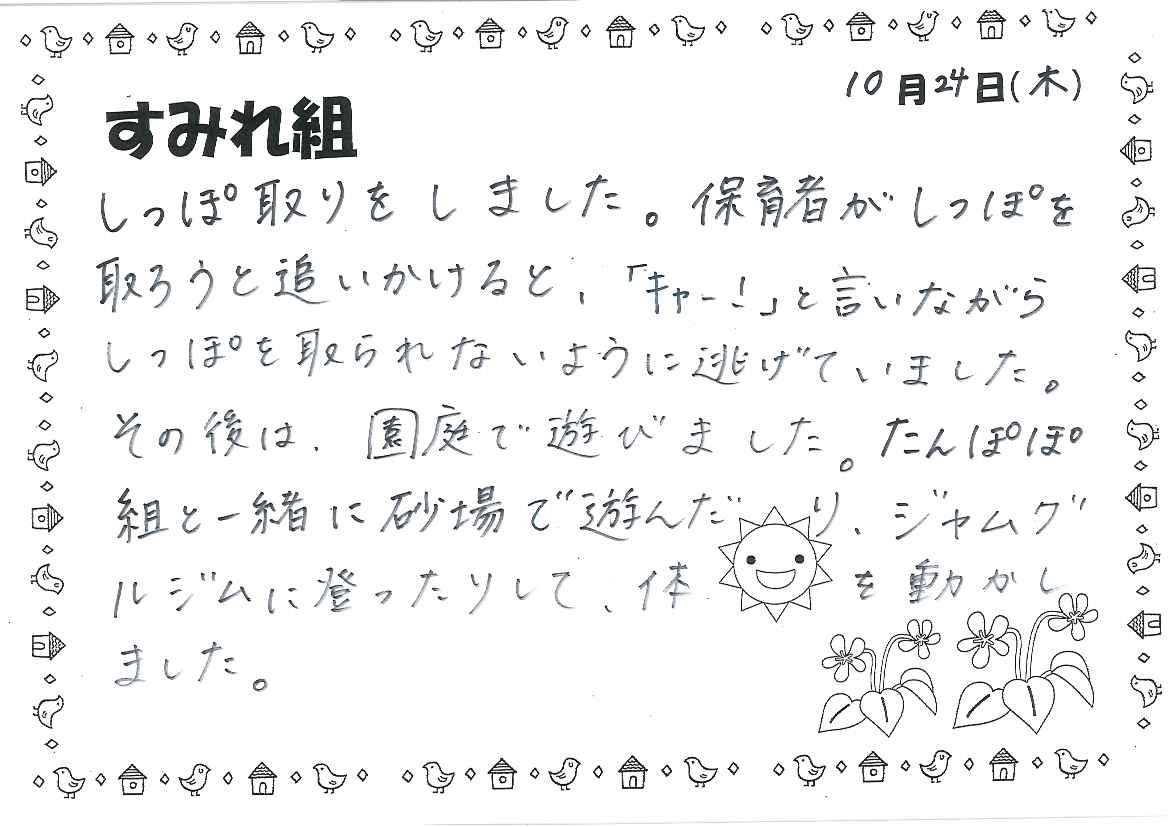 10月24日(木)
すみれ組
しっぽ取りをしました。保育者がしっぽを
取ろうと追いかけると、「キャー!」と言いながら
しっぽを取られないように逃げていました。
その後は、園庭で遊びました。たんぽぽ
組と一緒に砂場で遊んだり、ジャムグ
ルジムに登ったりして、体を動かし
ました。